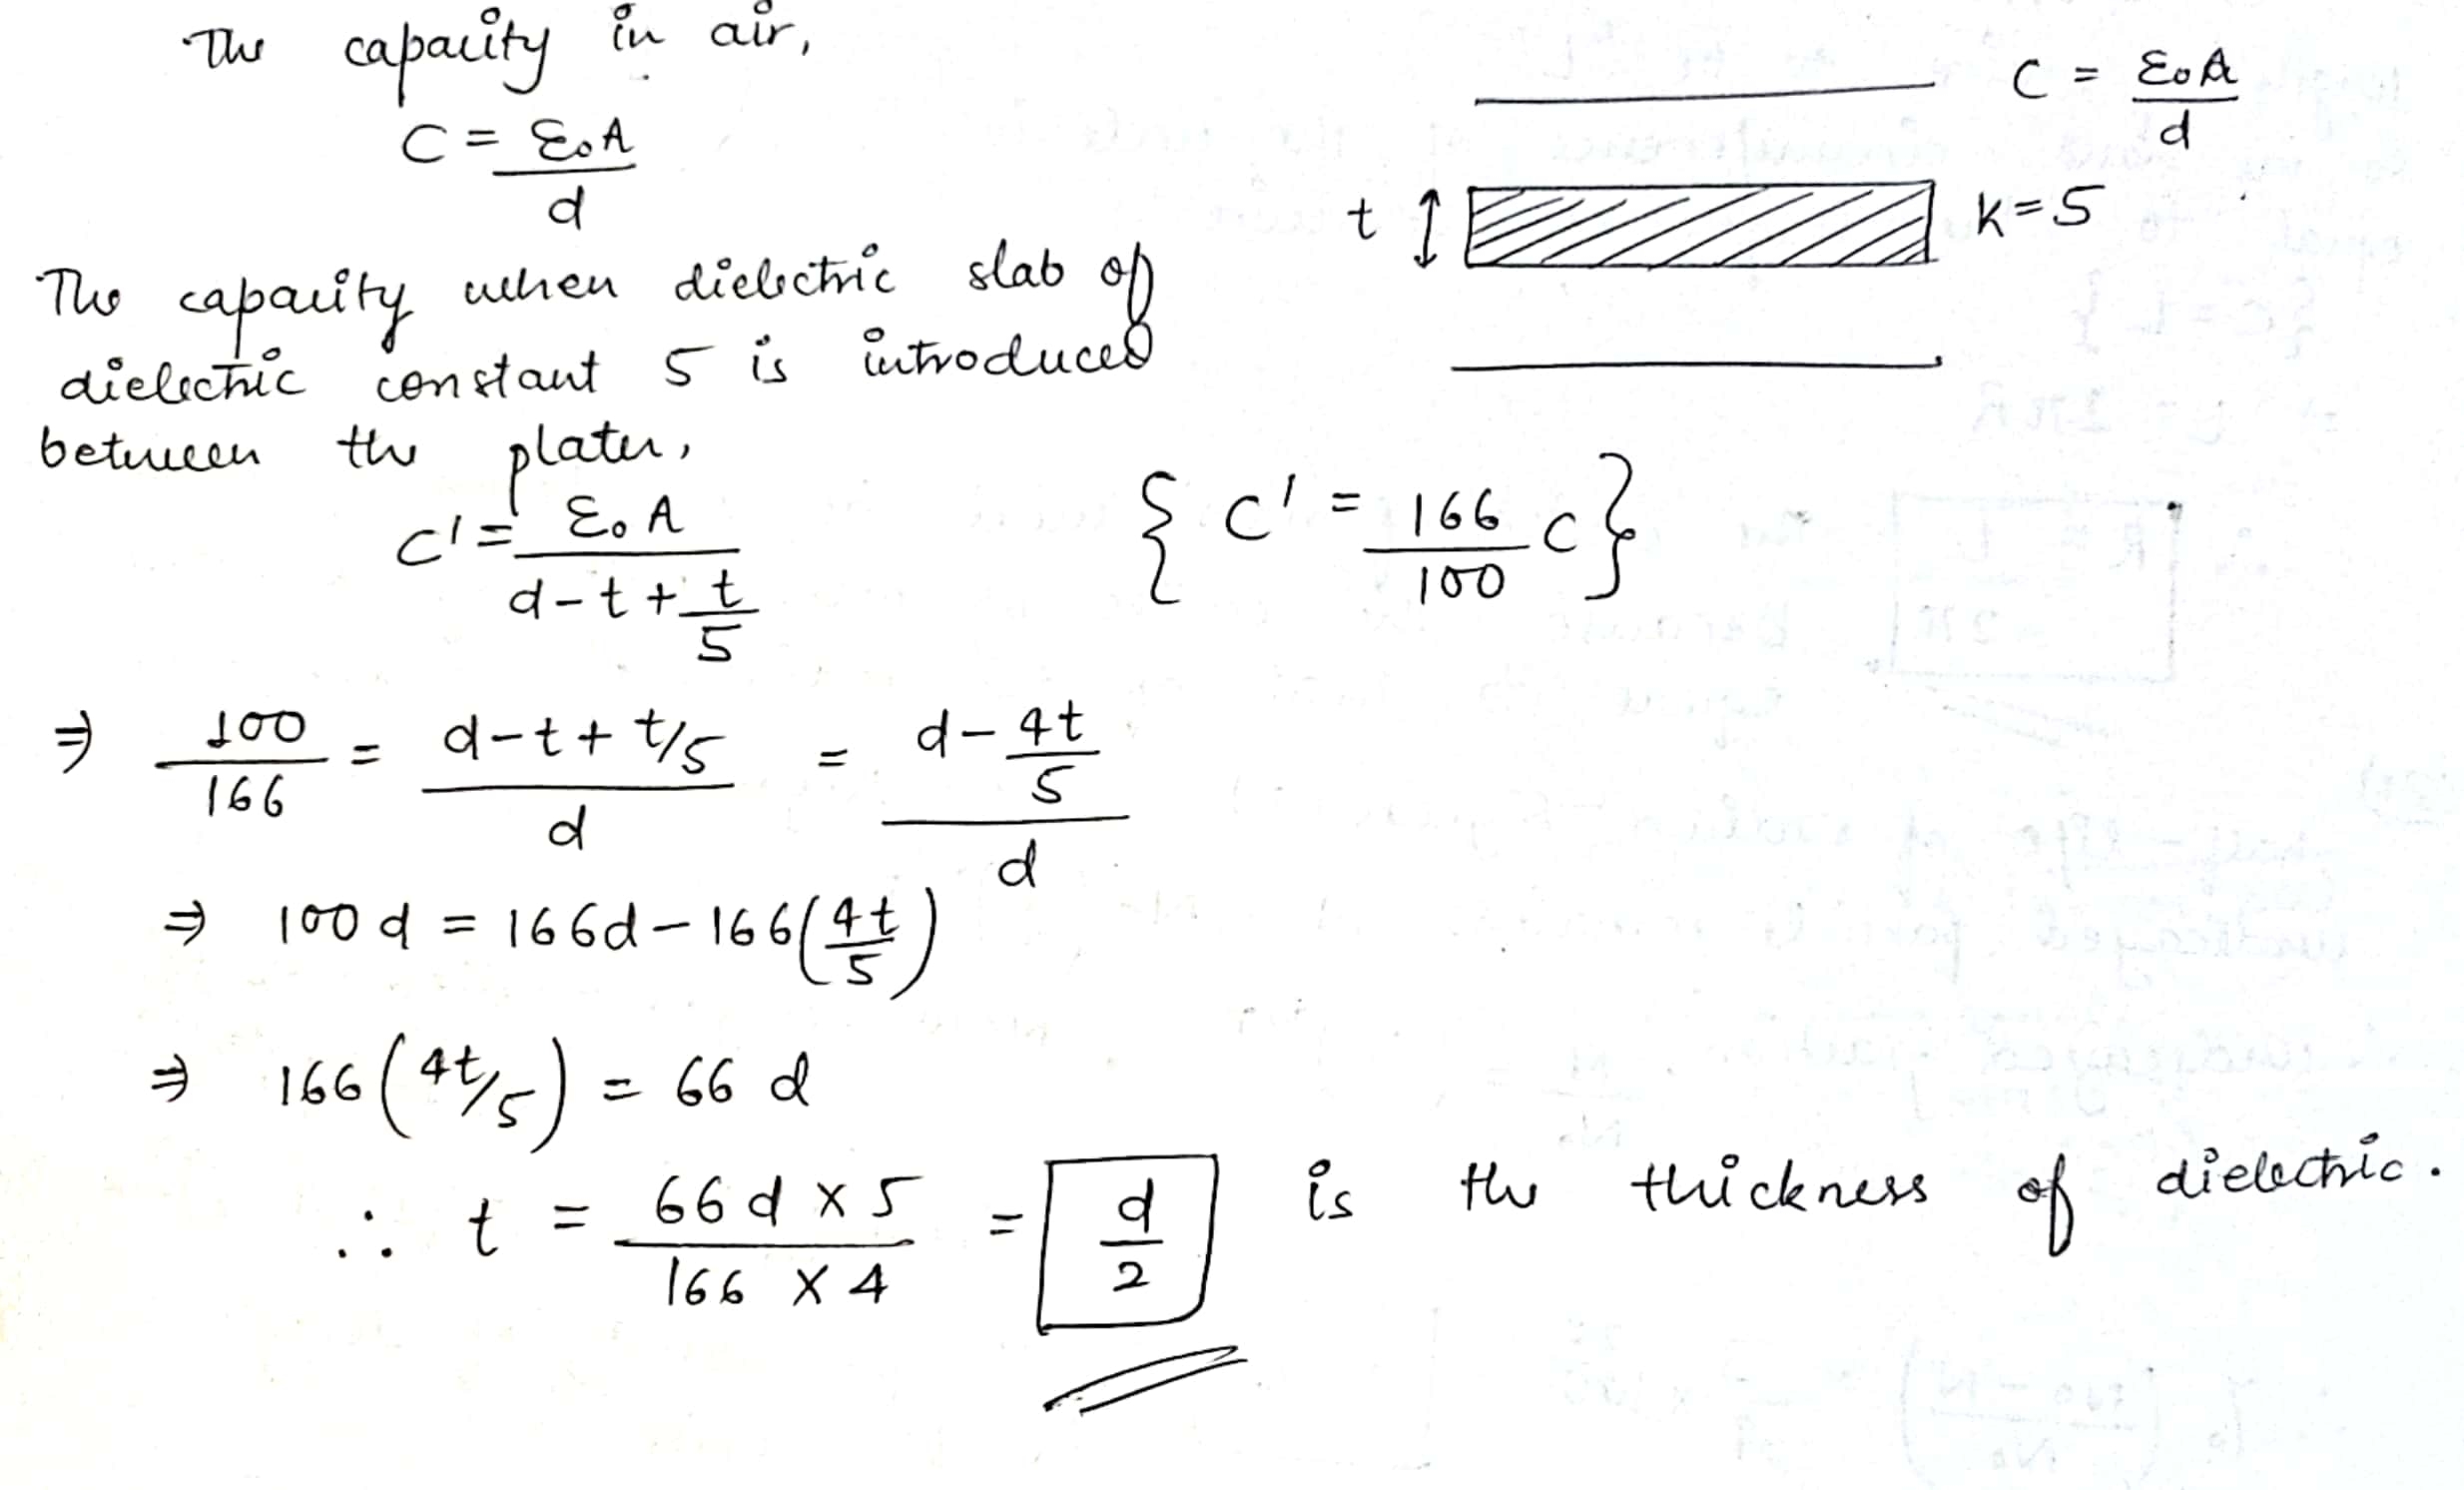 The capacity in air,
C = ε₀A / d
C = ε₀A / d
t ↕ K=5
The capacity when dielectric slab of
dielectric constant 5 is introduced
between the plates,
C' = ε₀A / (d-t+t/5)
{C' = 166/100 C}
⇒ 100/166 = (d-t+t/5)/d = (d-4t/5)/d
⇒ 100d = 166d-166(4t/5)
⇒ 166(4t/5) = 66 d
∴ t = (66d x 5)/(166 x 4) = d/2 is the thickness of dielectric.